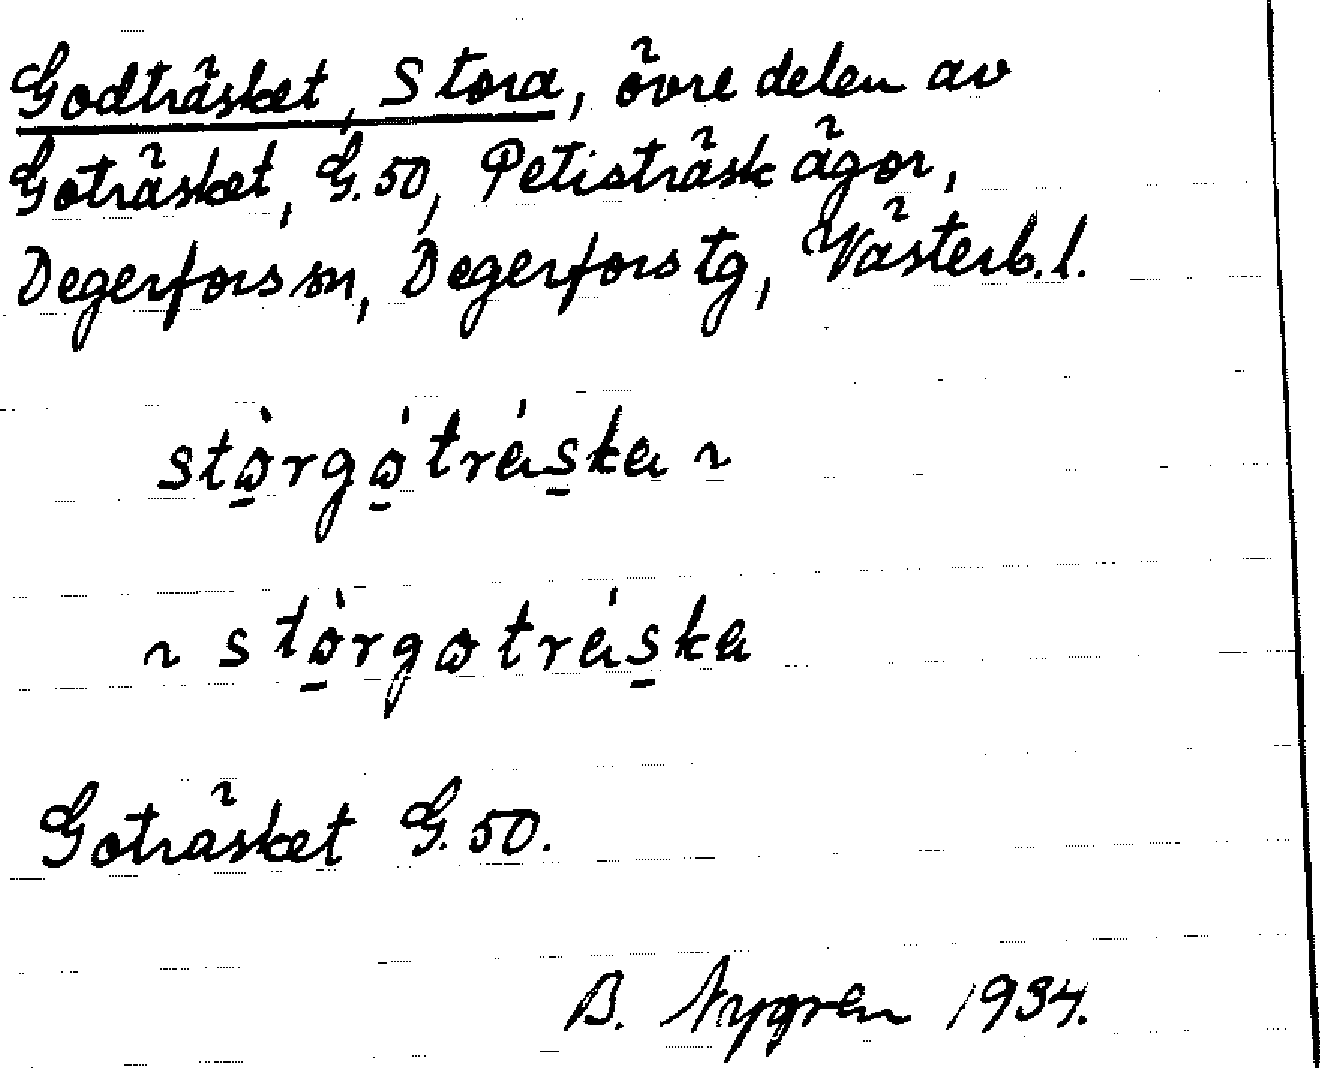 Godträsket, Stora, övre delen av
Goträsket, G.50, Petisträsk ägor,
Degerfors sn, Degerfors tg, Västerb.l.
stòrgótráska ~
~ stòrgotráska
Goträsket G.50.
B. Nygren 1934.